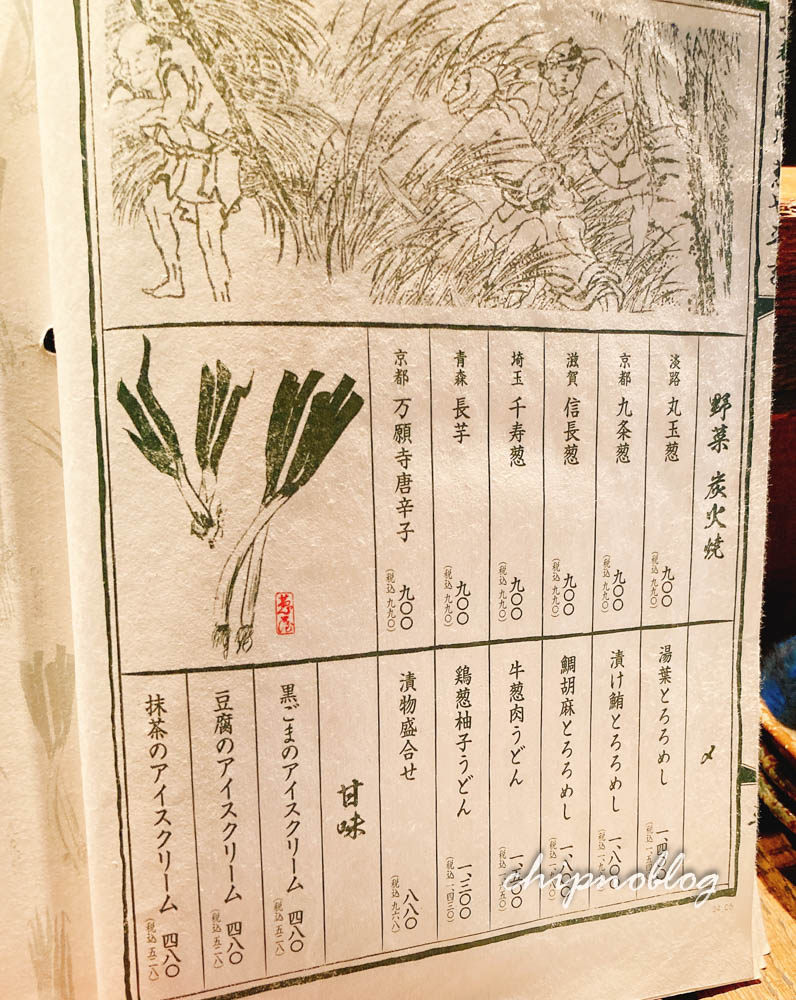 野菜 炭火焼
淡路 丸玉葱 九〇〇
(税込 九九〇)
京都 九条葱 九〇〇
(税込 九九〇)
滋賀 信長葱 九〇〇
(税込 九九〇)
埼玉 千寿葱 九〇〇
(税込 九九〇)
青森 長芋 九〇〇
(税込 九九〇)
京都 万願寺唐辛子 九〇〇
(税込 九九〇)
〆
湯葉とろろめし
漬け鮪とろろめし 一、八〇〇
鯛胡麻とろろめし 一、八〇〇
牛葱肉うどん
鶏葱柚子うどん 一、三〇〇
(税込 一、四三〇)
漬物盛合せ 八八〇
(税込 九六八)
甘味
黒ごまのアイスクリーム 四八〇
(税込 五二八)
豆腐のアイスクリーム 四八〇
(税込 五二八)
抹茶のアイスクリーム 四八〇
(税込 五二八)
chipnoblog